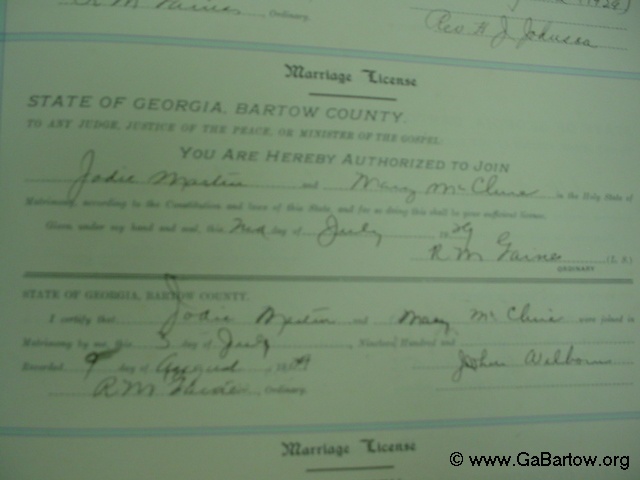 R M Gaines, Ordinary.
Rev. H. J. Johnson
Marriage License
STATE OF GEORGIA, BARTOW COUNTY.
TO ANY JUDGE, JUSTICE OF THE PEACE, OR MINISTER OF THE GOSPEL:
YOU ARE HEREBY AUTHORIZED TO JOIN
Jodie and Mary McClure in the Holy State of
Matrimony, according to the Constitution and laws of this State, and for so doing this shall be your sufficient license.
Given under my hand and seal, this day of July 1929
R M Gaines (L. S.)
ORDINARY
STATE OF GEORGIA, BARTOW COUNTY.
I certify that Jodie and Mary McClure were joined in
Matrimony by me, this 3 day of July, Nineteen Hundred and
Recorded 9 day of August, 19
John Wilborn
R M Gaines, Ordinary.
Marriage License
© www.GaBartow.org